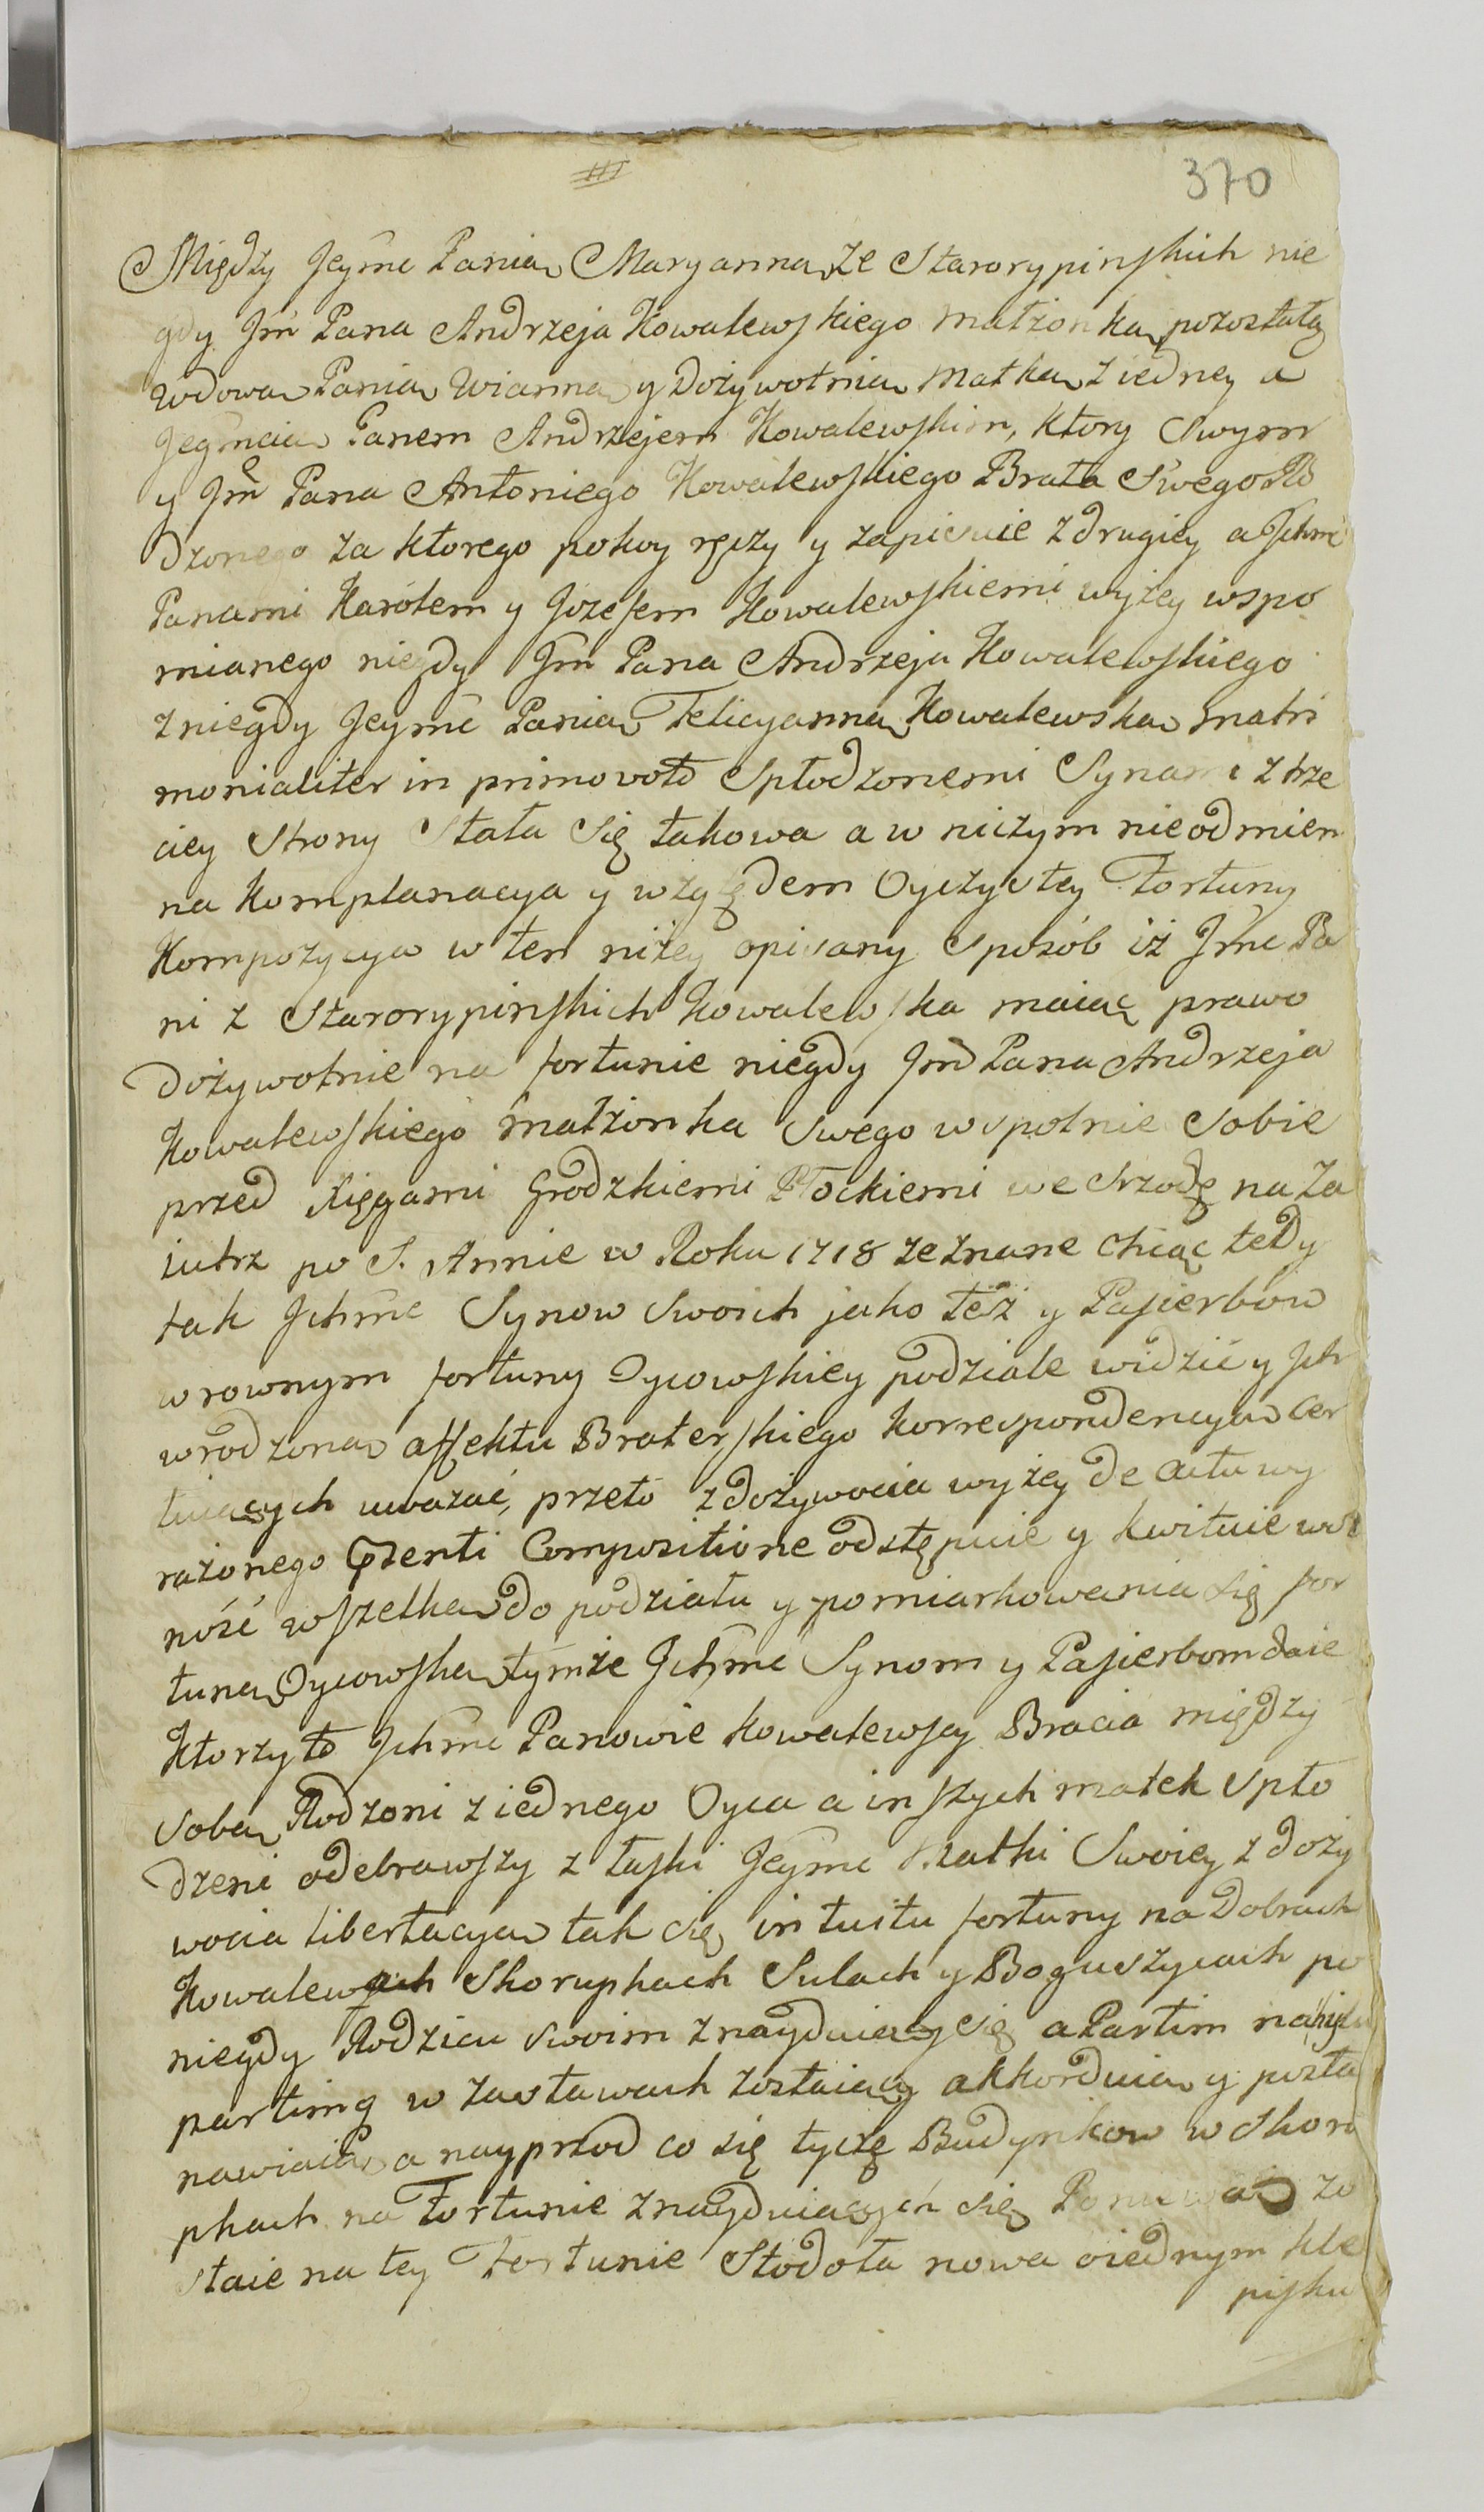 370
Między Jeymć Panią Maryanną ze Starorypinskich nie
gdy Jm Pana Andrzeja Kowalewskiego małżonką pozostałą
wdową Panią Wianną y Dożywotnią matką z iedney a
Jegmcią Panem Andrzejem Kowalewskim, ktory swym
y Jm Pana Antoniego Kowalewskiego Brata swego Ro
dzonego za ktorego pokoy ręczy y zapisuie z drugiey a Jchmć
Panami Karólem y Jozefem Kowalewskiemi wyżey wspo
mianego niegdy Jm Pana Andrzeja Kowalewskiego
z niegdy Jeymć Panią Felicyanną Kowalewską matri
monialiter in primo voto spłodzonemi Synami z trze
ciey strony stała się takowa a w niczym nieodmien
na komplanacya y względem Oyczystey Fortuny
Kompozycya w ten niżey opisany sposób iż Jmć Pa
ni z Starorypinskich Kowalewska maiąc prawo
Dożywotnie na fortunie niegdy Jm Pana Andrzeja
Kowalewskiego małżonka swego wspolnie sobie
przed Xięgami Grodzkiemi Płockiemi we Srzodę na za
iutrz po S. Annie w Roku 1718 zeznane chcąc tedy
tak Jchmć Synow swoich jako też y Pasierbów
w rownym fortuny Oycowskiey podziale widzić y Jch
wrodzoną affektu Braterskiego korrespondencyą cer
tuiących uważać, przeto z dożywocia wyżey de actu wy
rażonego Pzenti Compositione odstępuie y kwituie wol
ność wszelką do podziału y pomiarkowania się for
tuną Oycowską tymże Jchmć Synom y Pasierbom daie
Ktorzy to Jchmć Panowie Kowalewscy Bracia między
sobą Rodzoni z iednego Oyca a inszych matek spło
dzeni odebrawszy z łaski Jeymć Matki Swoiey z doży
wocia libertacyą tak się intuitu fortuny na Dobrach
Kowalewach Skorupkach Sulach y Boguszycach po
niegdy Rodzicu swoim znayduiący się a Partim
partimq w zastawach zostaiący akkorduią y posta
nawiaią a nayprzod co się tycze Budynkow w Skoru
pkach na Fortunie znayduiących się Ponieważ zo
staie na tey Fortunie Stodoła nowa o iednym kle
pisku